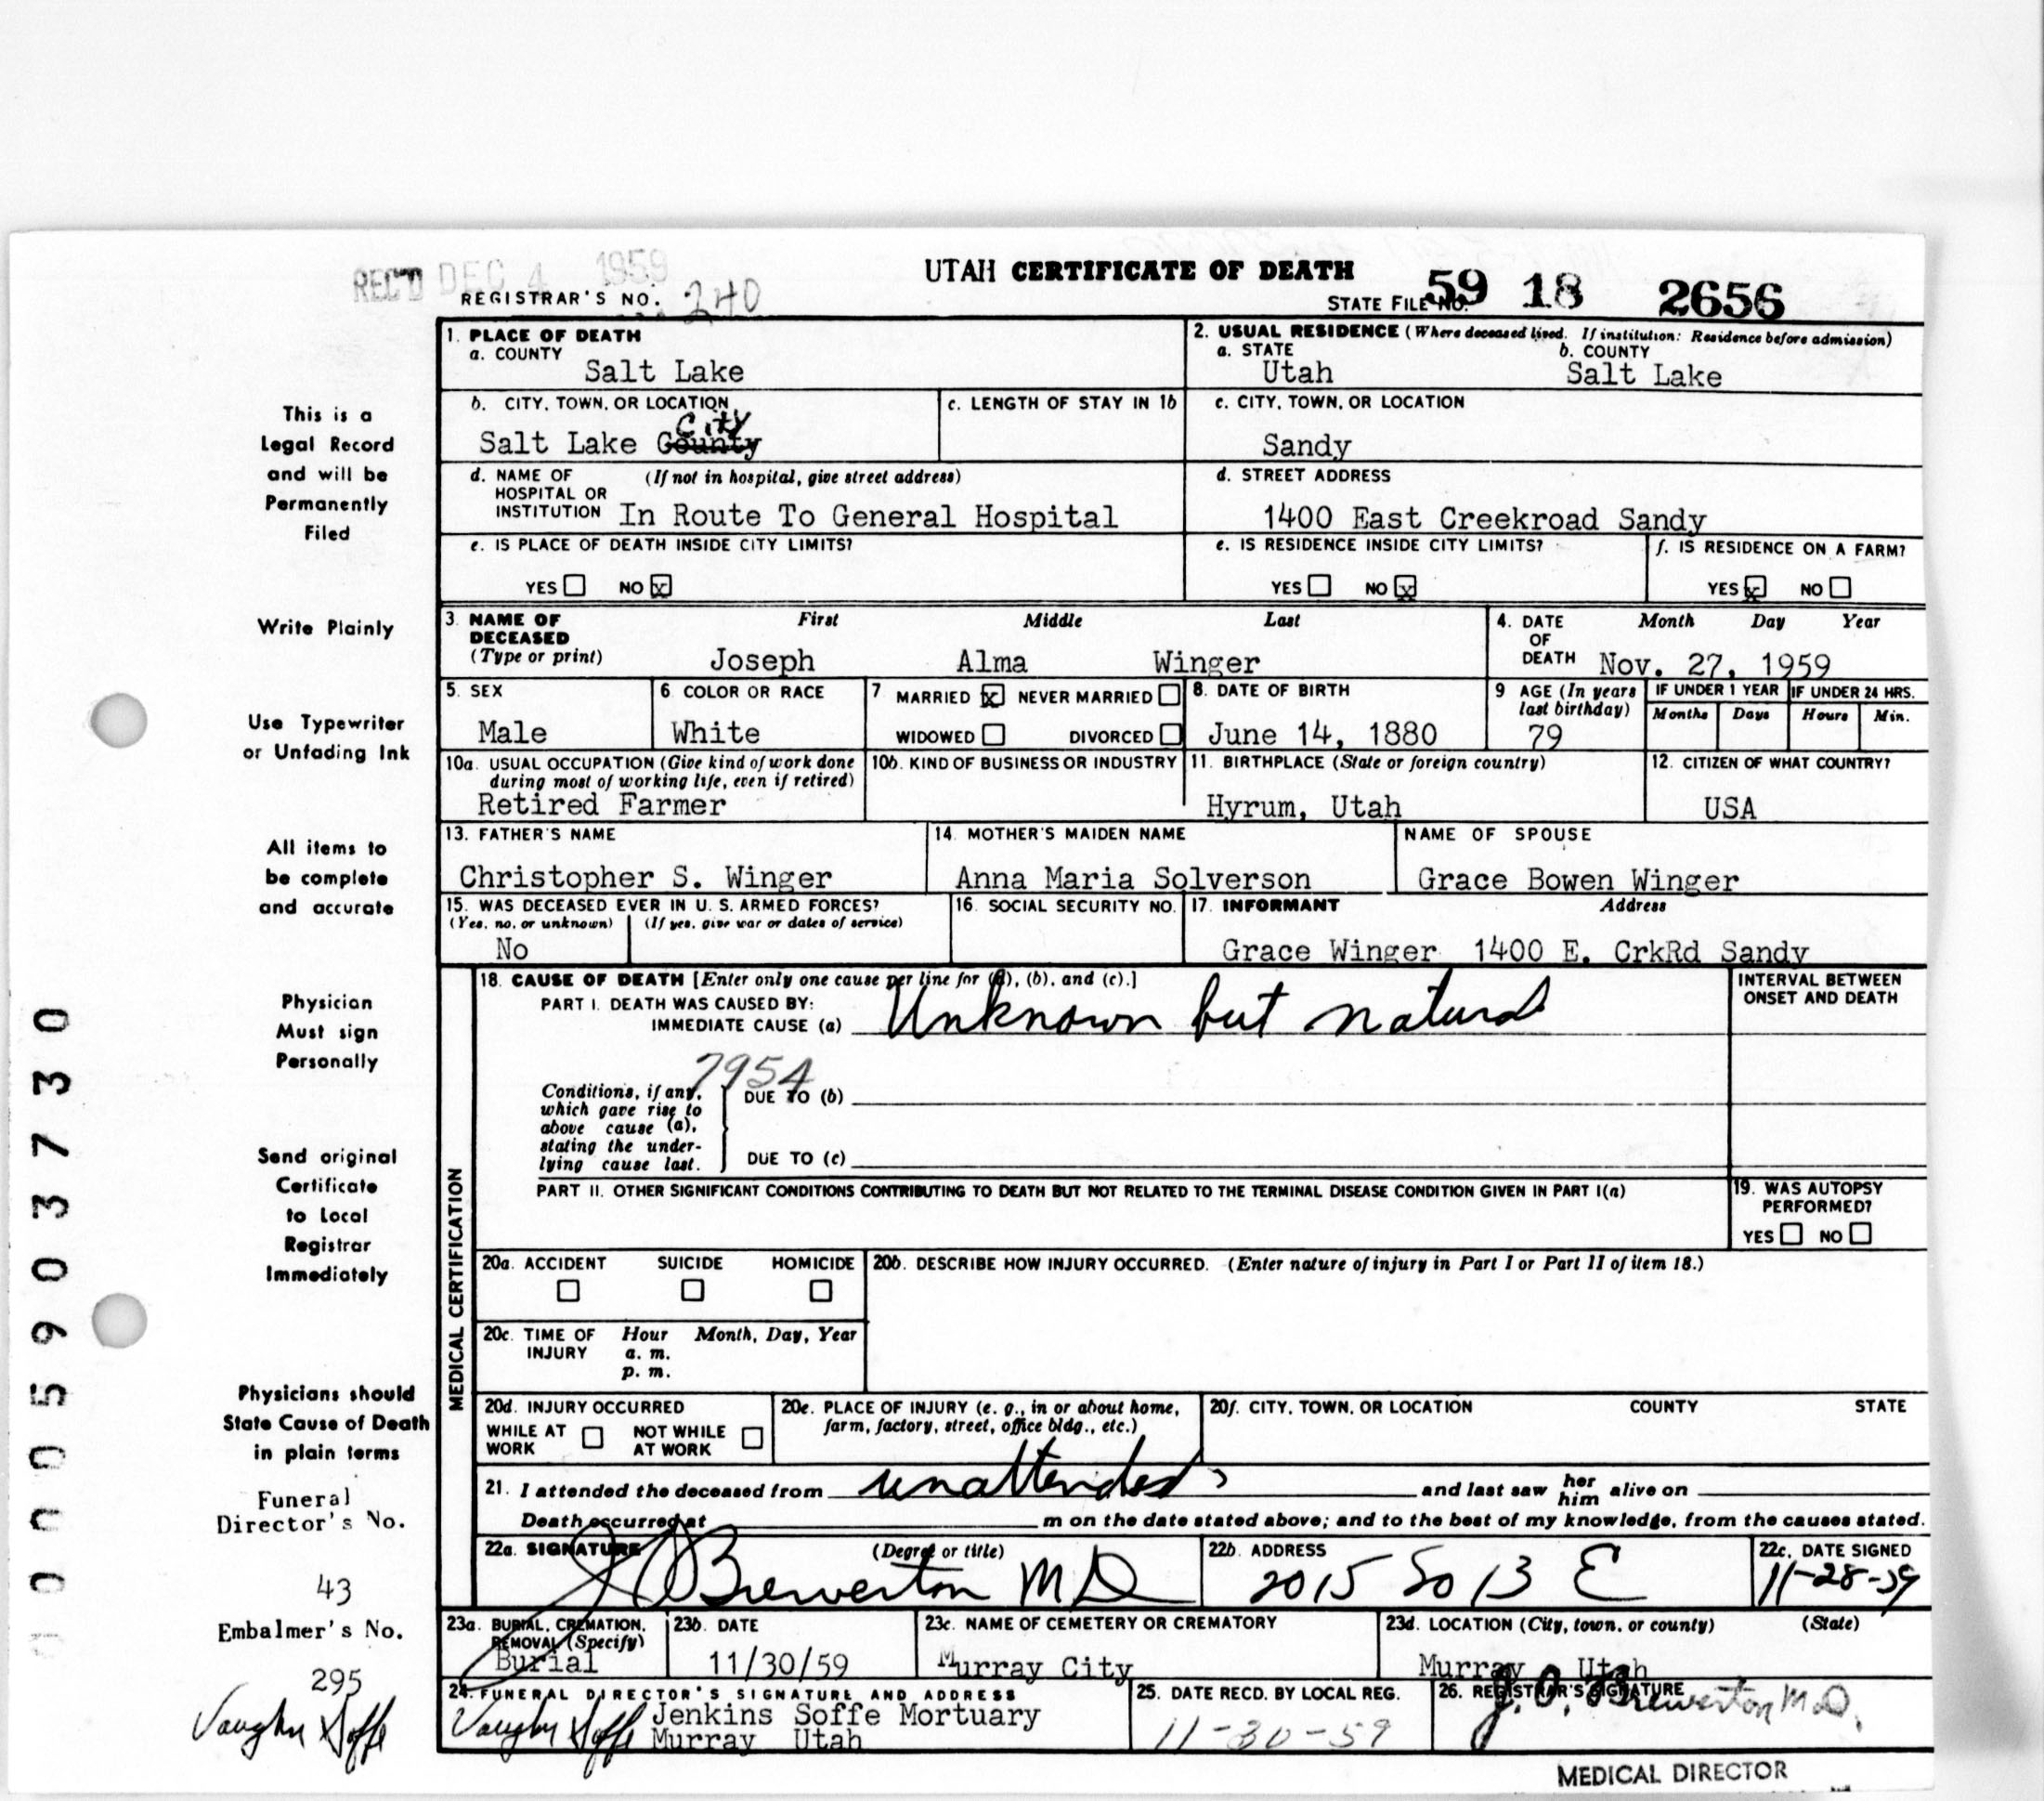 REC'D DEC 4 1959
UTAH CERTIFICATE OF DEATH
REGISTRAR'S NO. 240
STATE FILE NO. 59 18 2656
1. PLACE OF DEATH
a. COUNTY
Salt Lake
2. USUAL RESIDENCE (Where deceased lived. If institution: Residence before admission)
a. STATE b. COUNTY
Utah Salt Lake
b. CITY, TOWN, OR LOCATION
City
Salt Lake County
c. LENGTH OF STAY IN 1b
c. CITY, TOWN, OR LOCATION
Sandy
d. NAME OF (If not in hospital, give street address)
HOSPITAL OR
INSTITUTION In Route To General Hospital
d. STREET ADDRESS
1400 East Creekroad Sandy
e. IS PLACE OF DEATH INSIDE CITY LIMITS?
YES NO x
e. IS RESIDENCE INSIDE CITY LIMITS?
YES NO x
f. IS RESIDENCE ON A FARM?
YES x NO
3. NAME OF DECEASED (Type or print)
First Middle Last
Joseph Alma Winger
4. DATE OF DEATH
Month Day Year
Nov. 27, 1959
5. SEX
Male
6. COLOR OR RACE
White
7. MARRIED x NEVER MARRIED
WIDOWED DIVORCED
8. DATE OF BIRTH
June 14, 1880
9 AGE (In years
last birthday)
79
IF UNDER 1 YEAR
Months Days
IF UNDER 24 HRS.
Hours Min.
10a. USUAL OCCUPATION (Give kind of work done
during most of working life, even if retired)
Retired Farmer
10b. KIND OF BUSINESS OR INDUSTRY
11. BIRTHPLACE (State or foreign country)
Hyrum, Utah
12. CITIZEN OF WHAT COUNTRY?
USA
13. FATHER'S NAME
Christopher S. Winger
14. MOTHER'S MAIDEN NAME
Anna Maria Solverson
NAME OF SPOUSE
Grace Bowen Winger
15. WAS DECEASED EVER IN U. S. ARMED FORCES?
(Yes, no, or unknown) (If yes, give war or dates of service)
No
16. SOCIAL SECURITY NO.
17. INFORMANT Address
Grace Winger 1400 E. CrkRd Sandy
MEDICAL CERTIFICATION
18. CAUSE OF DEATH [Enter only one cause per line for (a), (b), and (c).]
PART I. DEATH WAS CAUSED BY:
IMMEDIATE CAUSE (a) Unknown but natural
INTERVAL BETWEEN
ONSET AND DEATH
7954
Conditions, if any,
which gave rise to
above cause (a),
stating the under-
lying cause last.
DUE TO (b)
DUE TO (c)
PART II. OTHER SIGNIFICANT CONDITIONS CONTRIBUTING TO DEATH BUT NOT RELATED TO THE TERMINAL DISEASE CONDITION GIVEN IN PART I(a)
19. WAS AUTOPSY
PERFORMED?
YES NO
20a. ACCIDENT SUICIDE HOMICIDE
20b. DESCRIBE HOW INJURY OCCURRED. (Enter nature of injury in Part I or Part II of item 18.)
20c. TIME OF INJURY
Hour Month, Day, Year
a. m.
p. m.
20d. INJURY OCCURRED
WHILE AT WORK NOT WHILE AT WORK
20e. PLACE OF INJURY (e. g., in or about home,
farm, factory, street, office bldg., etc.)
20f. CITY, TOWN, OR LOCATION COUNTY STATE
21. I attended the deceased from unattended and last saw her him alive on
Death occurred at m on the date stated above; and to the best of my knowledge, from the causes stated.
22a. SIGNATURE (Degree or title)
J O Brewerton MD
22b. ADDRESS
2015 So 13 E
22c. DATE SIGNED
11-28-59
23a. BURIAL, CREMATION,
REMOVAL (Specify)
Burial
23b. DATE
11/30/59
23c. NAME OF CEMETERY OR CREMATORY
Murray City
23d. LOCATION (City, town, or county) (State)
Murray Utah
24. FUNERAL DIRECTOR'S SIGNATURE AND ADDRESS
Vaughn Soffe Jenkins Soffe Mortuary
Murray Utah
25. DATE RECD. BY LOCAL REG.
11-30-59
26. REGISTRAR'S SIGNATURE
J. O. Brewerton M.D.
MEDICAL DIRECTOR
This is a
Legal Record
and will be
Permanently
Filed
Write Plainly
Use Typewriter
or Unfading Ink
All items to
be complete
and accurate
Physician
Must sign
Personally
Send original
Certificate
to Local
Registrar
Immediately
Physicians should
State Cause of Death
in plain terms
Funeral
Director's No.
43
Embalmer's No.
295
Vaughn Soffe
0000590373​0